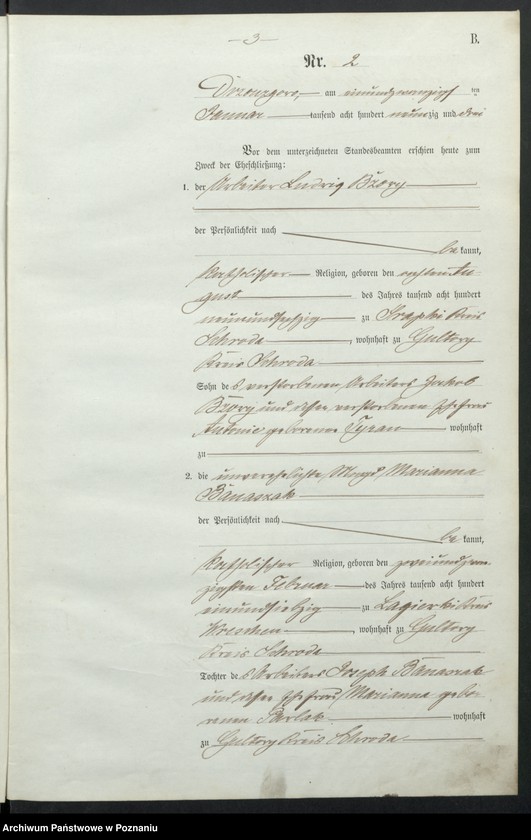 — 3 —
B.
Nr. 2
am einundzwanzigsten
Januar tausend acht hundert neunzig und drei
Vor dem unterzeichneten Standesbeamten erschien heute zum
Zweck der Eheschließung:
1. der Arbeiter Ludwig
der Persönlichkeit nach
be kannt,
katholischer Religion, geboren den Au-
gust des Jahres tausend acht hundert
neunundsechzig zu Kreis
Schroda, wohnhaft zu Gultowy
Kreis Schroda
Sohn des verstorbenen Arbeiters Jakob
und dessen verstorbenen Ehefrau
Antonie geborenen wohnhaft
zu
2. die unverehelichte Magd, Marianna
Banaszak
der Persönlichkeit nach
be kannt,
katholischer Religion, geboren den zweiundzwan-
zigsten Februar des Jahres tausend acht hundert
einundsiebzig zu Kreis
Wreschen, wohnhaft zu Gultowy
Kreis Schroda
Tochter des Arbeiters Joseph Banaszak
und dessen Ehefrau Marianna gebo-
renen wohnhaft
zu Gultowy Kreis Schroda.
Archiwum Państwowe w Poznaniu